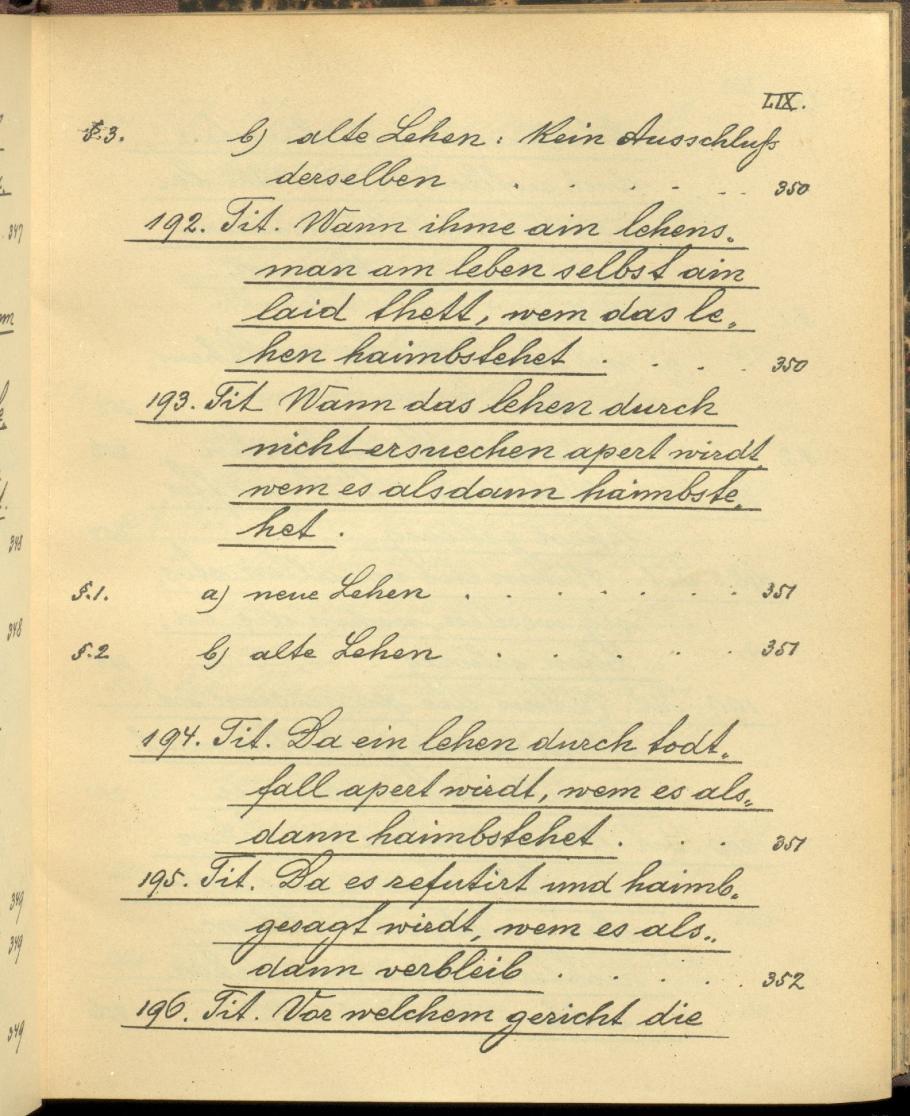 LIX.
§.3. b) alte Lehen: Kein Ausschluß
derselben . . . . . . 350
192. Tit. Wann ihme ain lehens„
man am leben selbst ain
laid thett, wem das le„
hen haimbstehet . . . . 350
193. Tit Wann das lehen durch
nicht ersuechen apert wirdt,
wem es alsdann haimbste„
het .
§.1. a) neue Lehen . . . . . . . 351
§.2 b) alte Lehen . . . . . 351
194. Tit. Da ein lehen durch todt„
fall apert wirdt, wem es als„
dann haimbstehet . . . 351
195. Tit. Da es refutirt und haimb„
gesagt wirdt, wem es als„
dann verbleib . . . . . 352
196. Tit. Vor welchem gericht die
347
348
348
349
349
349